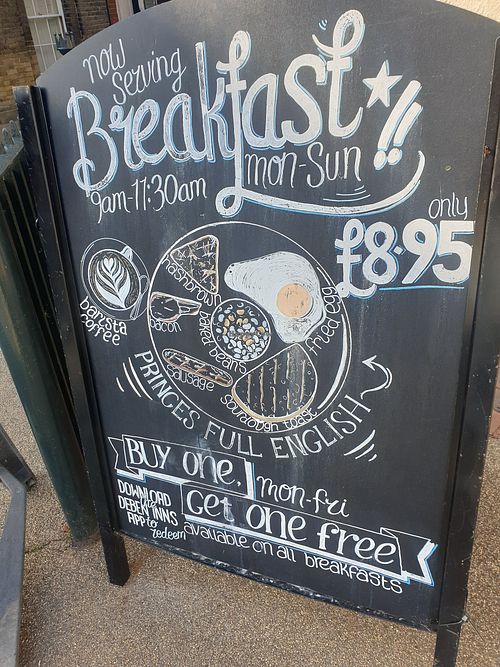 now
Serving
Breakfast!!
9am-11:30am
mon-Sun
only
£8.95
barista
coffee
hashbrown
bacon
baked beans
fried egg
sausage
sourdough toast
PRINCES FULL ENGLISH
BUY one,
mon-fri
Get one free
DOWNLOAD
DEBEK INNS
APP to
redeem
available on all breakfasts